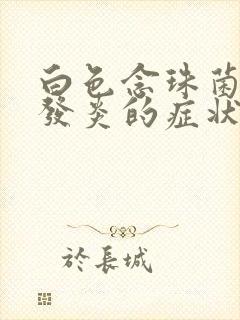 白色念珠菌
發炎的症狀
於長城